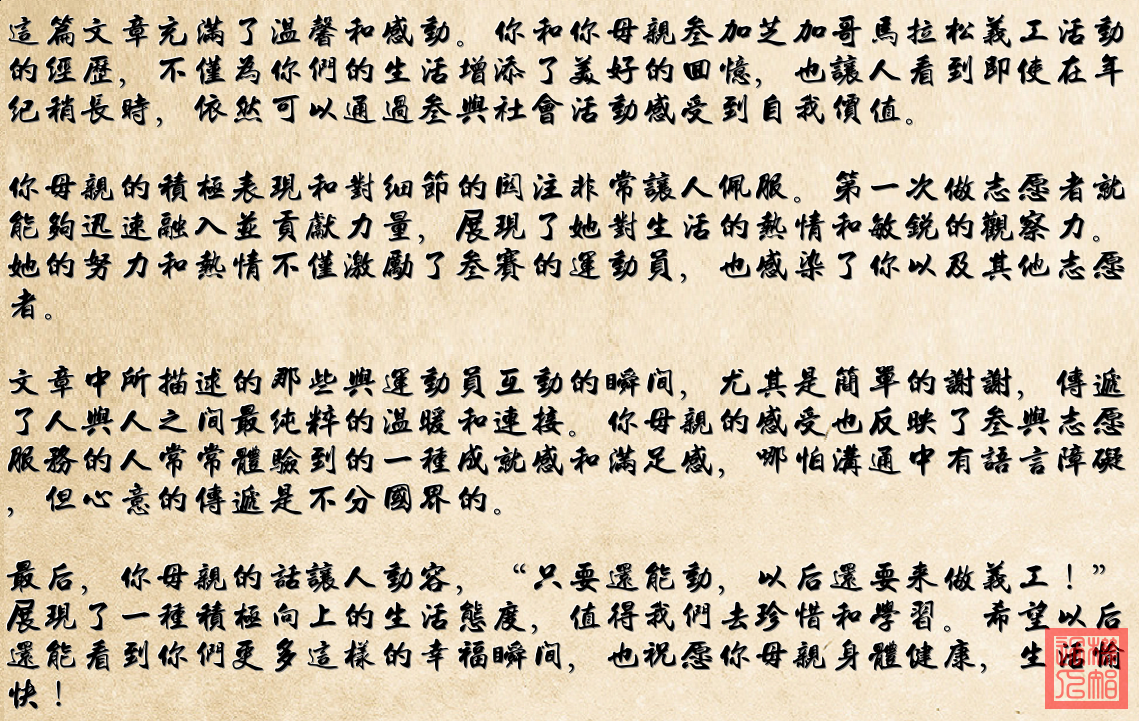 這篇文章充滿了溫馨和感動。你和你母親叄加芝加哥馬拉松義工活動
的經歷，不僅為你們的生活增添了美好的回憶，也讓人看到即使在年
纪稍長時，依然可以通過叄與社會活動感受到自我價值。
你母親的積極表現和對細節的関注非常讓人佩服。第一次做志愿者就
能夠迅速融入並貢獻力量，展現了她對生活的熱情和敏鋭的觀察力。
她的努力和熱情不僅激勵了叄賽的運動員，也感染了你以及其他志愿
者。
文章中所描述的那些與運動員互動的瞬间，尤其是簡單的謝謝，傳遞
了人與人之间最纯粹的溫暖和連接。你母親的感受也反映了叄與志愿
服務的人常常體驗到的一種成就感和滿足感，哪怕溝通中有語言障礙
，但心意的傳遞是不分國界的。
最后，你母親的話讓人動容，“只要還能動，以后還要来做義工！”
展現了一種積極向上的生活態度，值得我們去珍惜和學習。希望以后
還能看到你們更多這樣的幸福瞬间，也祝愿你母親身體健康，生活愉
快！